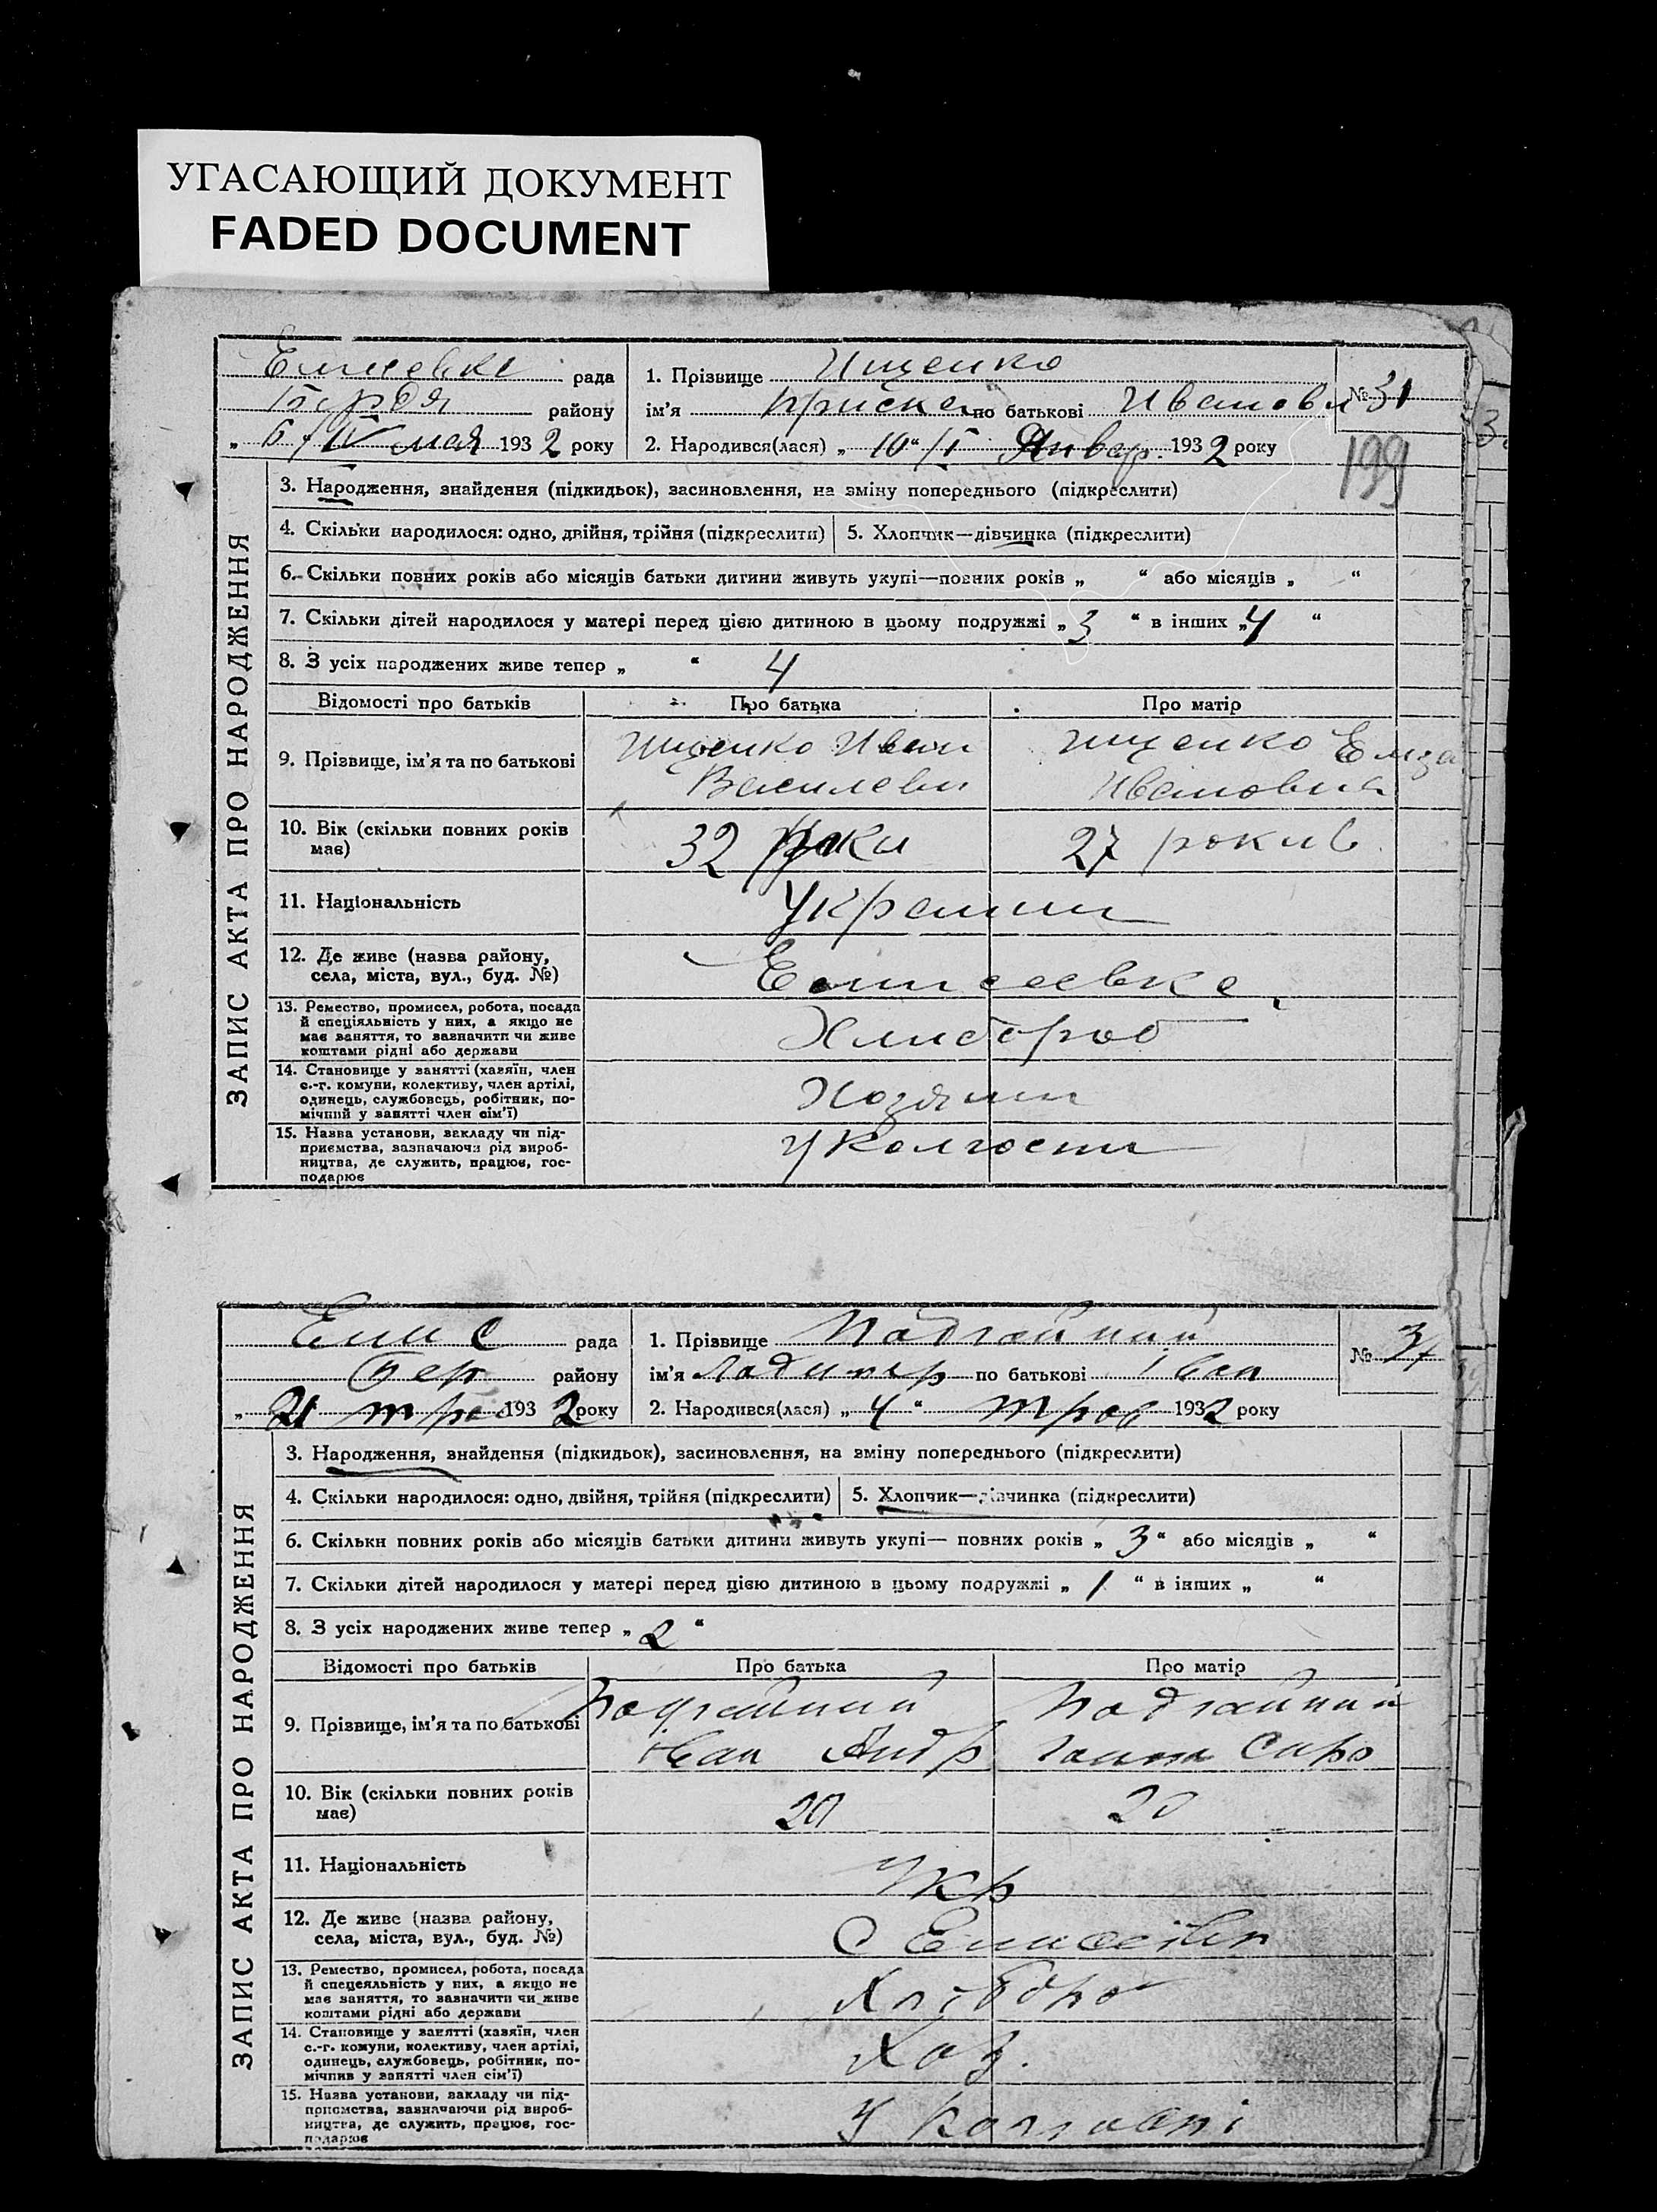 УГАСАЮЩИЙ ДОКУМЕНТ
FADED DOCUMENT
рада
району
„ 6 / мая 1932 року
1. Прізвище Ищенко
ім'я Приска по батькові Иванов
2. Народився(лася) „ 10 “ /I Январ. 1932 року
№ 31
199
ЗАПИС АКТА ПРО НАРОДЖЕННЯ
3. Народження, знайдення (підкидьок), засиновлення, на зміну попереднього (підкреслити)
4. Скільки народилося: одно, двійня, трійня (підкреслити)
5. Хлопчик—дівчинка (підкреслити)
6. Скільки повних років або місяців батьки дитини живуть укупі—повних років „ “ або місяців „ “
7. Скільки дітей народилося у матері перед цією дитиною в цьому подружжі „ 3 “ в інших „ 4 “
8. З усіх народжених живе тепер „ “ 4
Відомості про батьків
Про батька
Про матір
9. Прізвище, ім'я та по батькові
Ищенко Иван
Василеви
Ищенко
Ивановна
10. Вік (скільки повних років
має)
32 роки
27 рокив
11. Національність
Украинц
12. Де живе (назва району,
села, міста, вул., буд. №)
Елисеевка
13. Ремество, промисел, робота, посада
й спеціяльність у них, а якщо не
має заняття, то зазначити чи живе
коштами рідні або держави
Хлибороб
14. Становище у занятті (хазяїн, член
с.-г. комуни, колективу, член артілі,
одинець, службовець, робітник, по-
мічний у занятті член сім'ї)
Хозяин
15. Назва установи, закладу чи під-
приємства, зазначаючи рід вироб-
ництва, де служить, працює, гос-
подарює
у Колгоспи
Елис рада
Бер району
„ 21 трав 1932 року
1. Прізвище Подгайний
ім'я Ладимер по батькові Іван
2. Народився(лася) „ 4 “ трав 1932 року
№
ЗАПИС АКТА ПРО НАРОДЖЕННЯ
3. Народження, знайдення (підкидьок), засиновлення, на зміну попереднього (підкреслити)
4. Скільки народилося: одно, двійня, трійня (підкреслити)
5. Хлопчик—дівчинка (підкреслити)
6. Скільки повних років або місяців батьки дитини живуть укупі— повних років „ 3 “ або місяців „ “
7. Скільки дітей народилося у матері перед цією дитиною в цьому подружжі „ 1 “ в інших „ “
8. З усіх народжених живе тепер „ 2 “
Відомості про батьків
Про батька
Про матір
9. Прізвище, ім'я та по батькові
Подгайний
Іван Андр
Подгайний
10. Вік (скільки повних років
має)
20
20
11. Національність
Укр
12. Де живе (назва району,
села, міста, вул., буд. №)
С
13. Ремество, промисел, робота, посада
й спецеяльність у них, а якщо не
має заняття, то зазначити чи живе
коштами рідні або держави
Хліборо
14. Становище у занятті (хазяїн, член
с.-г. комуни, колективу, член артілі,
одинець, службовець, робітник, по-
мічнив у занятті член сім'ї)
Хоз.
15. Назва установи, закладу чи під-
приємства, зазначаючи рід вироб-
ництва, де служить, працює, гос-
подарює
У Колгоспі